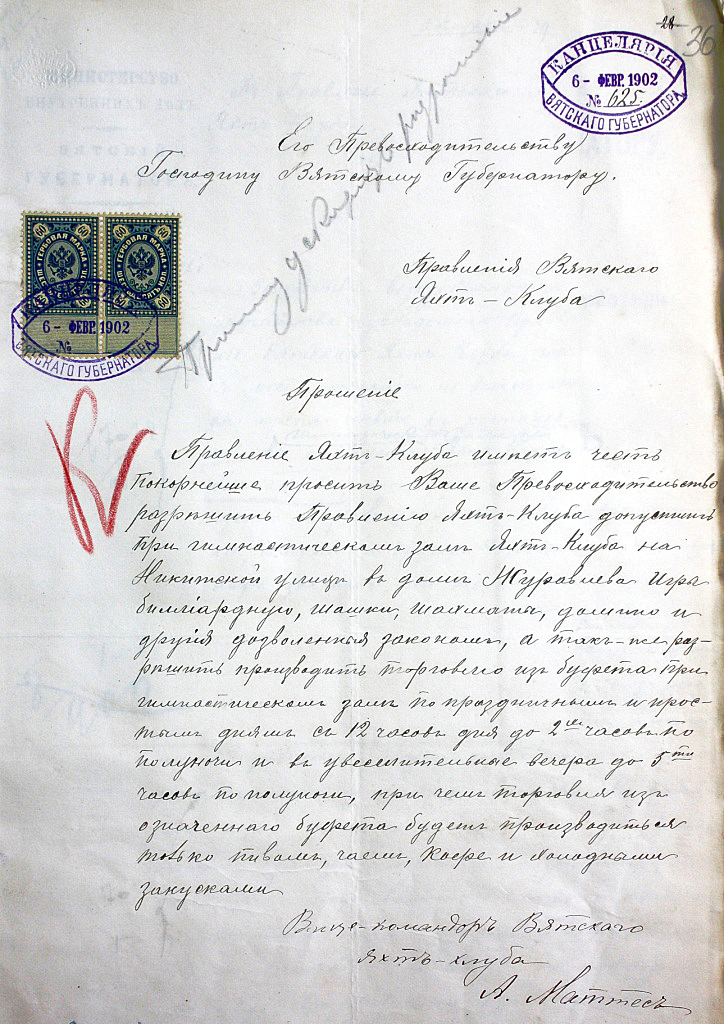 28
36
КАНЦЕЛЯРІЯ
6- ФЕВР. 1902
№ 625.
ВЯТСКАГО ГУБЕРНАТОРА
Его Превосходительству
Господину Вятскому Губернатору.
60 60 60 60
ГЕРБОВАЯ МАРКА
ГЕРБОВАЯ МАРКА
6- ФЕВР. 1902
№
ВЯТСКАГО ГУБЕРНАТОРА
Правленія Вятскаго
Яхтъ-Клуба
Прошеніе
Правленіе Яхтъ-Клуба имѣетъ честь
покорнѣйше просить Ваше Превосходительство
разрѣшить Правленію Яхтъ-Клуба допустить
при гимнастическомъ залѣ Яхтъ-Клуба на
Никитской улицѣ въ домѣ Журавлева игры
билліардную, шашки, шахматы, домино и
другія дозволенныя закономъ, а такъ-же раз-
рѣшить производить торговлю изъ буфета при
гимнастическомъ залѣ по праздничнымъ и прос-
тымъ днямъ съ 12 часовъ дня до 2хъ часовъ по
полуночи и въ увеселительные вечера до 5ти
часовъ по полуночи, при чемъ торговля изъ
означеннаго буфета будетъ производиться
только пивомъ, чаемъ, кофе и холодными
закусками
Вице-командоръ Вятскаго
яхтъ-клуба
А. Маттесъ